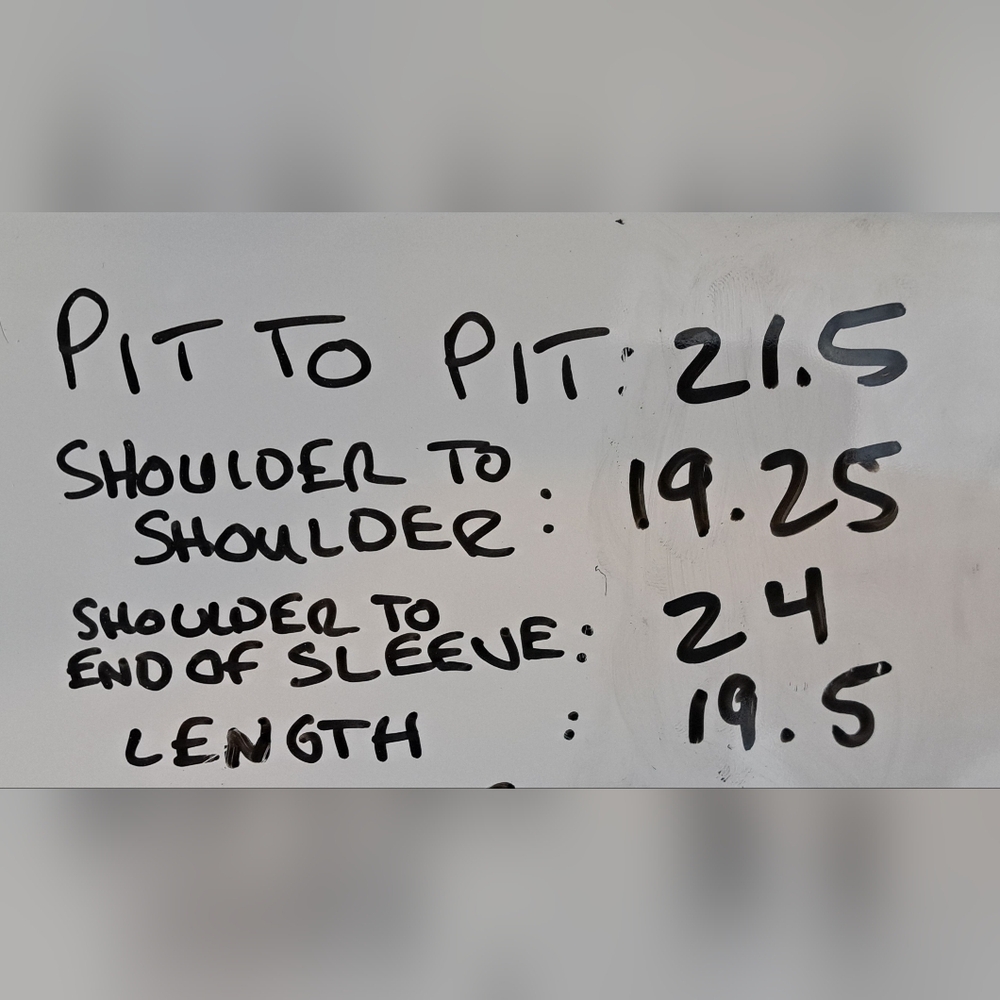 PIT TO PIT: 21.5
SHOULDER TO
SHOULDER : 19.25
SHOULDER TO
END OF SLEEVE: 24
LENGTH : 19.5